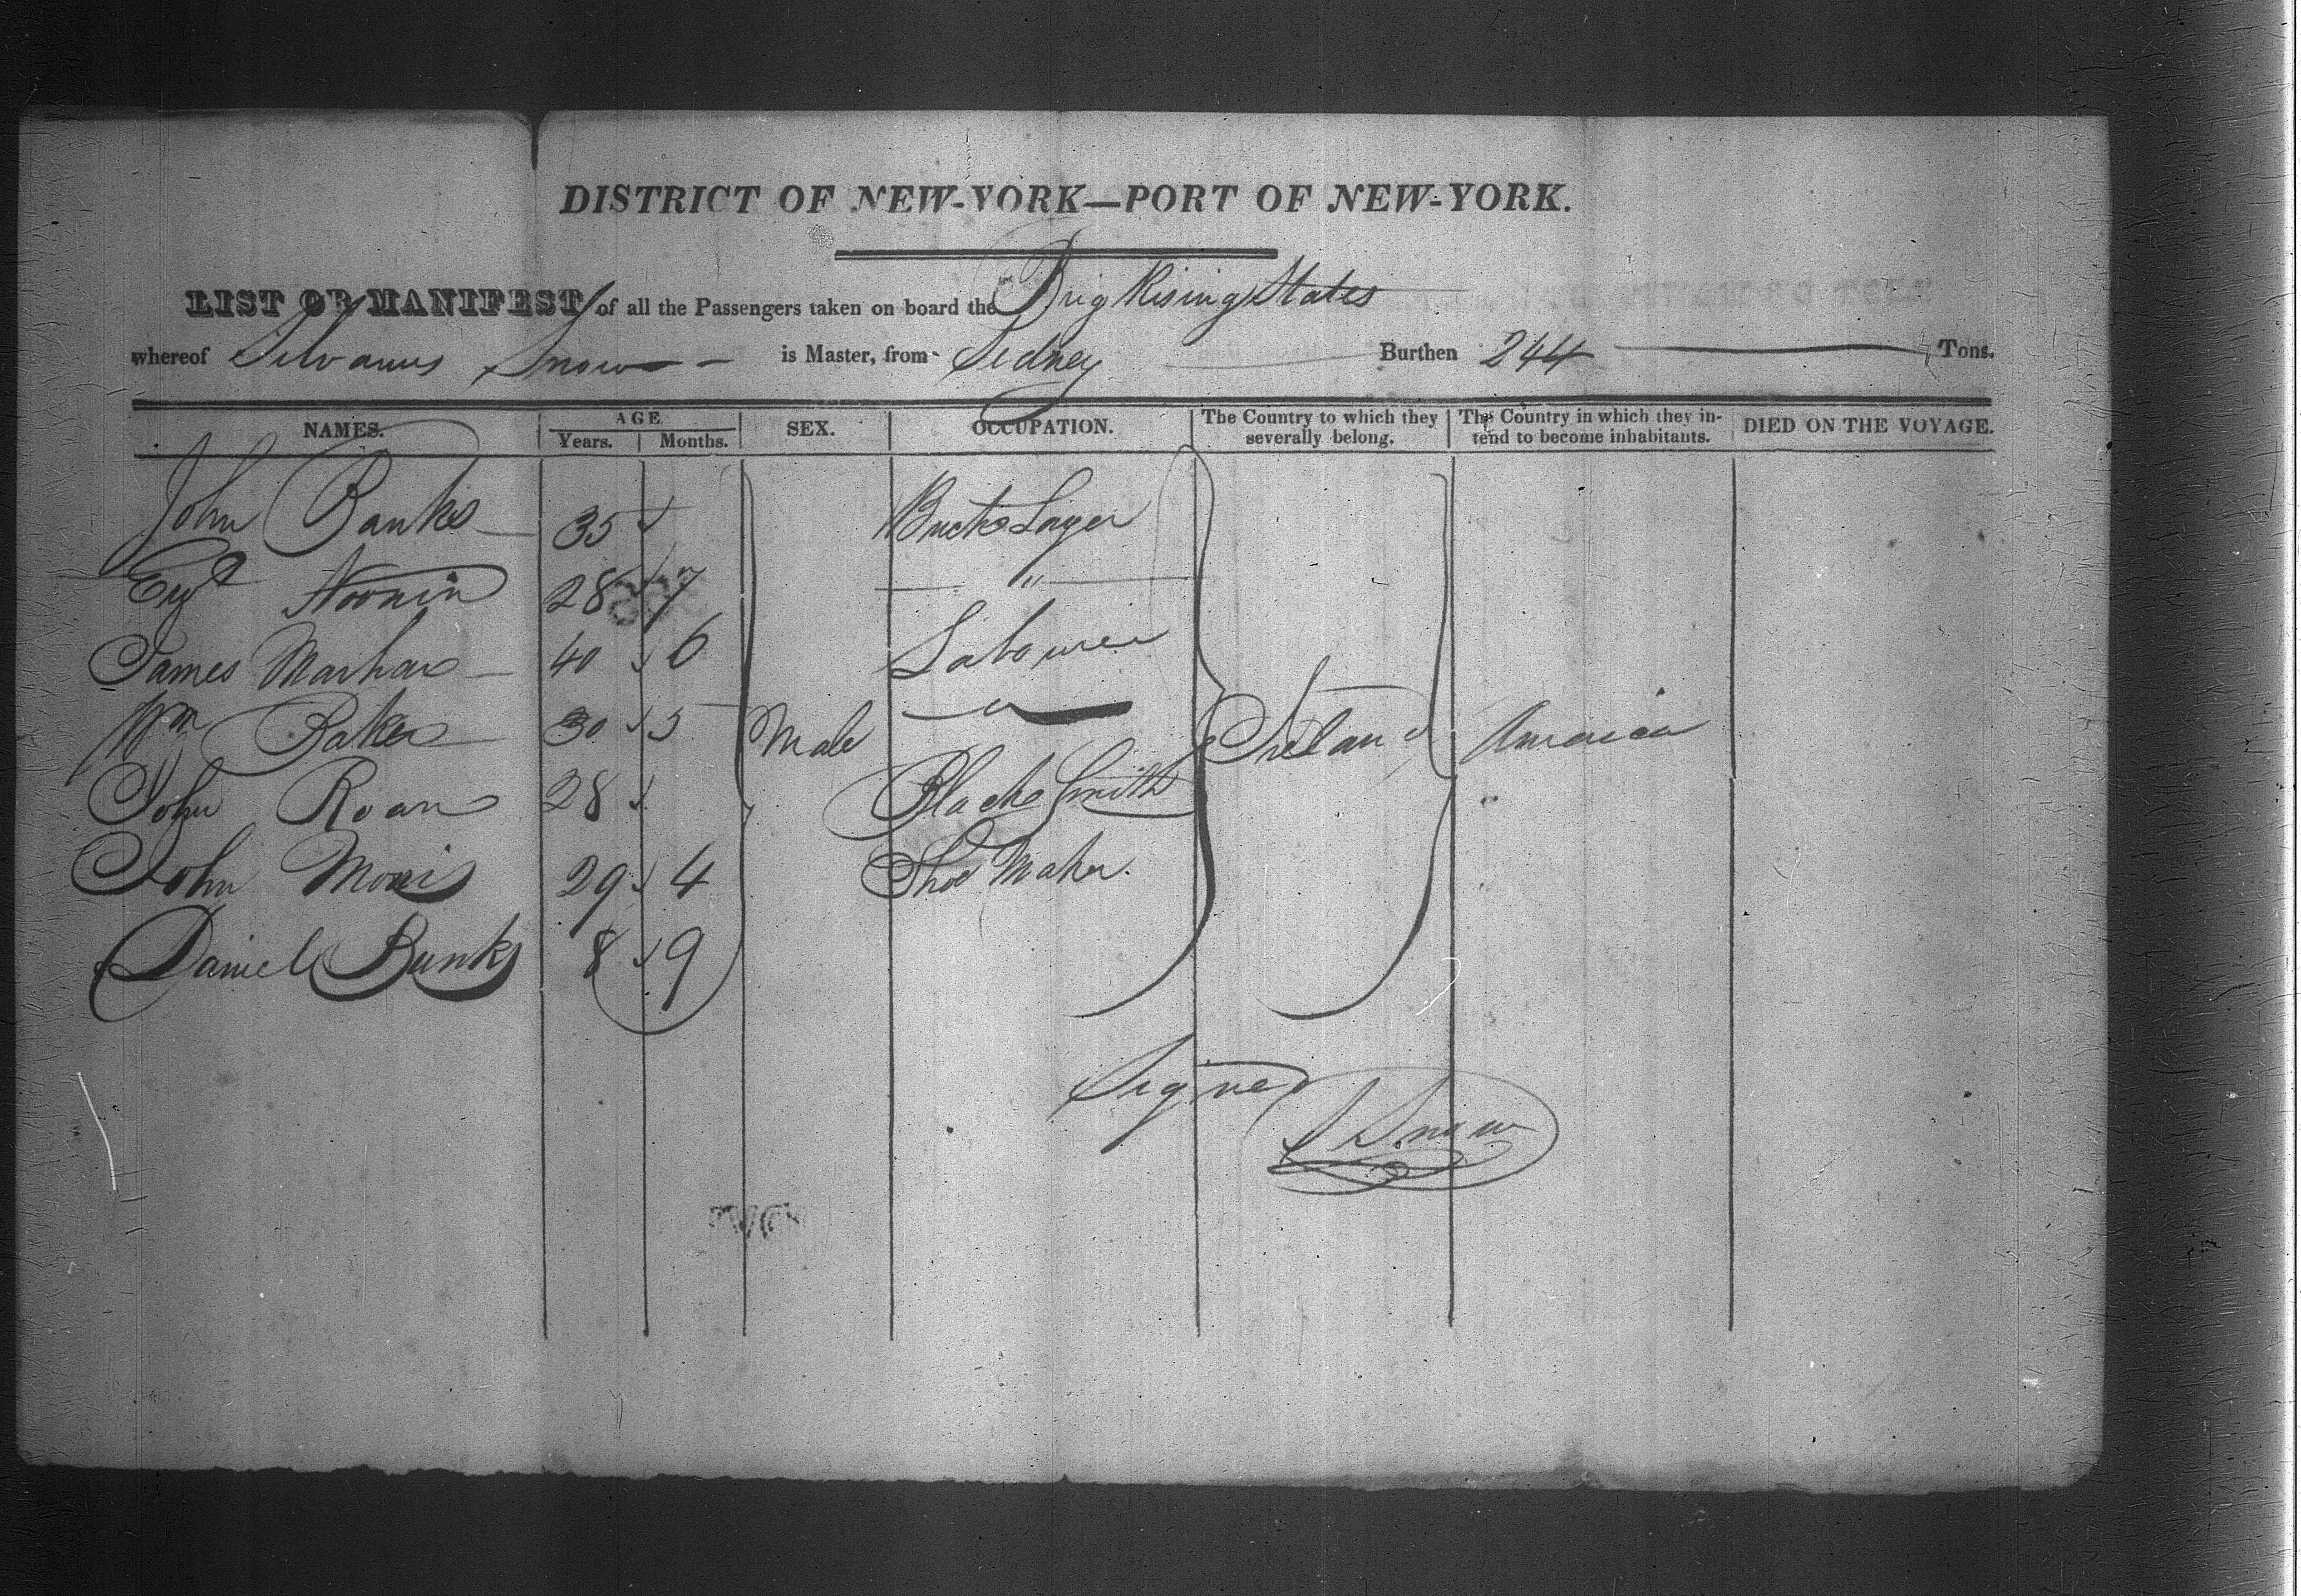 DISTRICT OF NEW-YORK—PORT OF NEW-YORK.
LIST OR MANIFEST of all the Passengers taken on board the Brig Rising States
whereof Silvanus Snow is Master, from Sidney Burthen 244 Tons.
NAMES. AGE. Years. Months. SEX. OCCUPATION. The Country to which they severally belong. The Country in which they intend to become inhabitants. DIED ON THE VOYAGE.
John Banks 35 Brick Layer
Noonin 28 7 "
James 40 6 Labourer
Wm Baker 30 5 Male Ireland America
John Roan 28 Black Smith
John Morris 29 4 Shoe Maker.
Daniel Bunks 8 9
Signed
S Snow